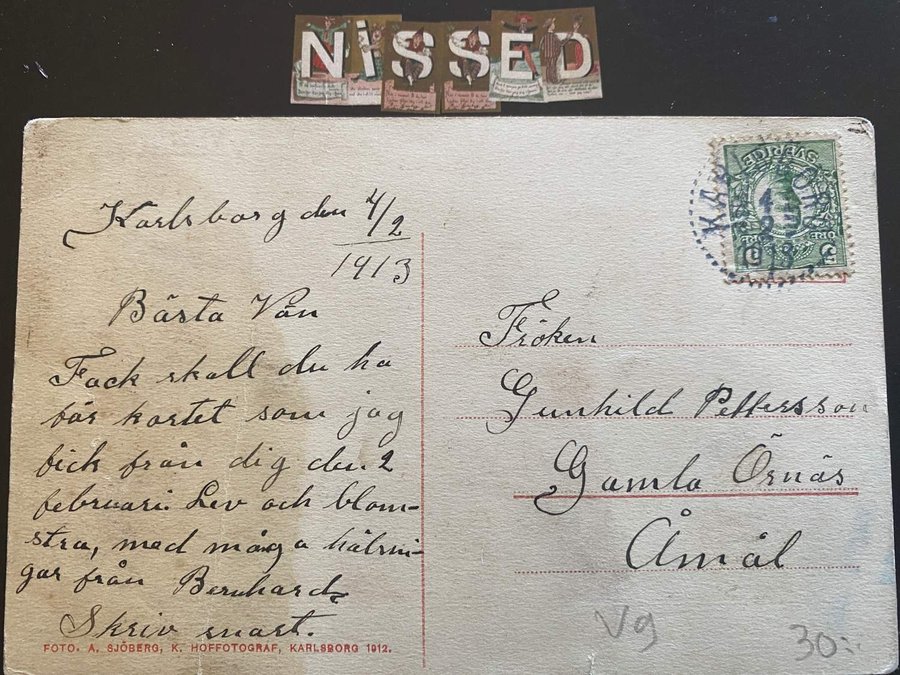 NISSED
Karlsborg den 4/2
1913
Bästa Vän
Tack skall du ha
för kortet som jag
fick från dig den 2
februari. Lev och blom-
stra, med många hälsnin-
gar från Bernhard
Skriv snart.
FOTO. A. SJÖBERG, K. HOFFOTOGRAF, KARLSBORG 1912.
SVERIGE
KARLSBORG
4 2 13
5 ÖRE 5
Fröken
Gunhild Pettersson
Gamla Örnäs
Åmål
Vg
30:-